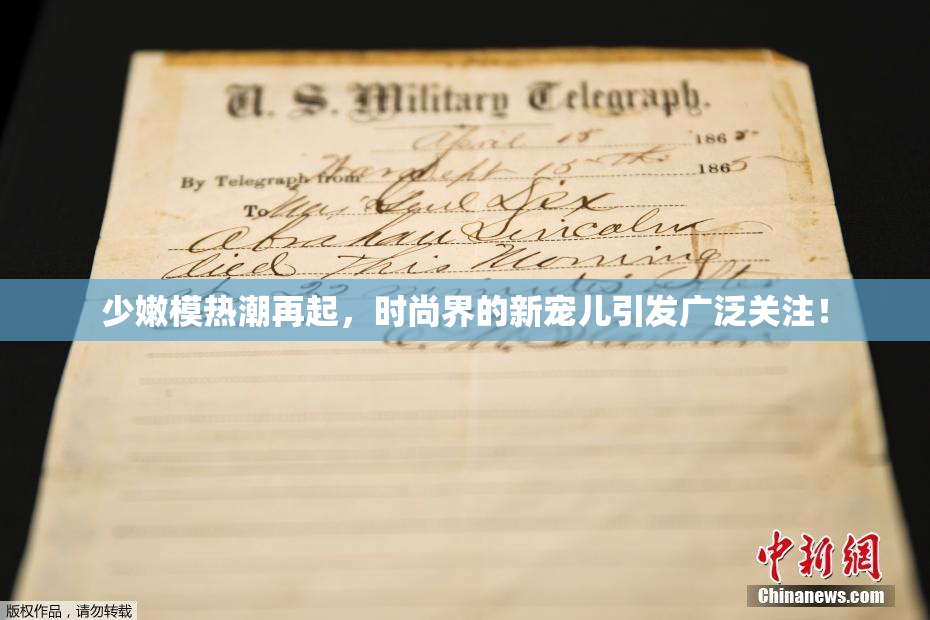 U. S. Military Telegraph.
April 15 1865
By Telegraph from War Dept 15th 1865
To Maj Genl Dix
Abraham Lincoln
died This Morning
at 22 minutes after
少嫩模热潮再起，时尚界的新宠儿引发广泛关注！
E. M. Stanton
中新网
Chinanews.com
版权作品，请勿转载